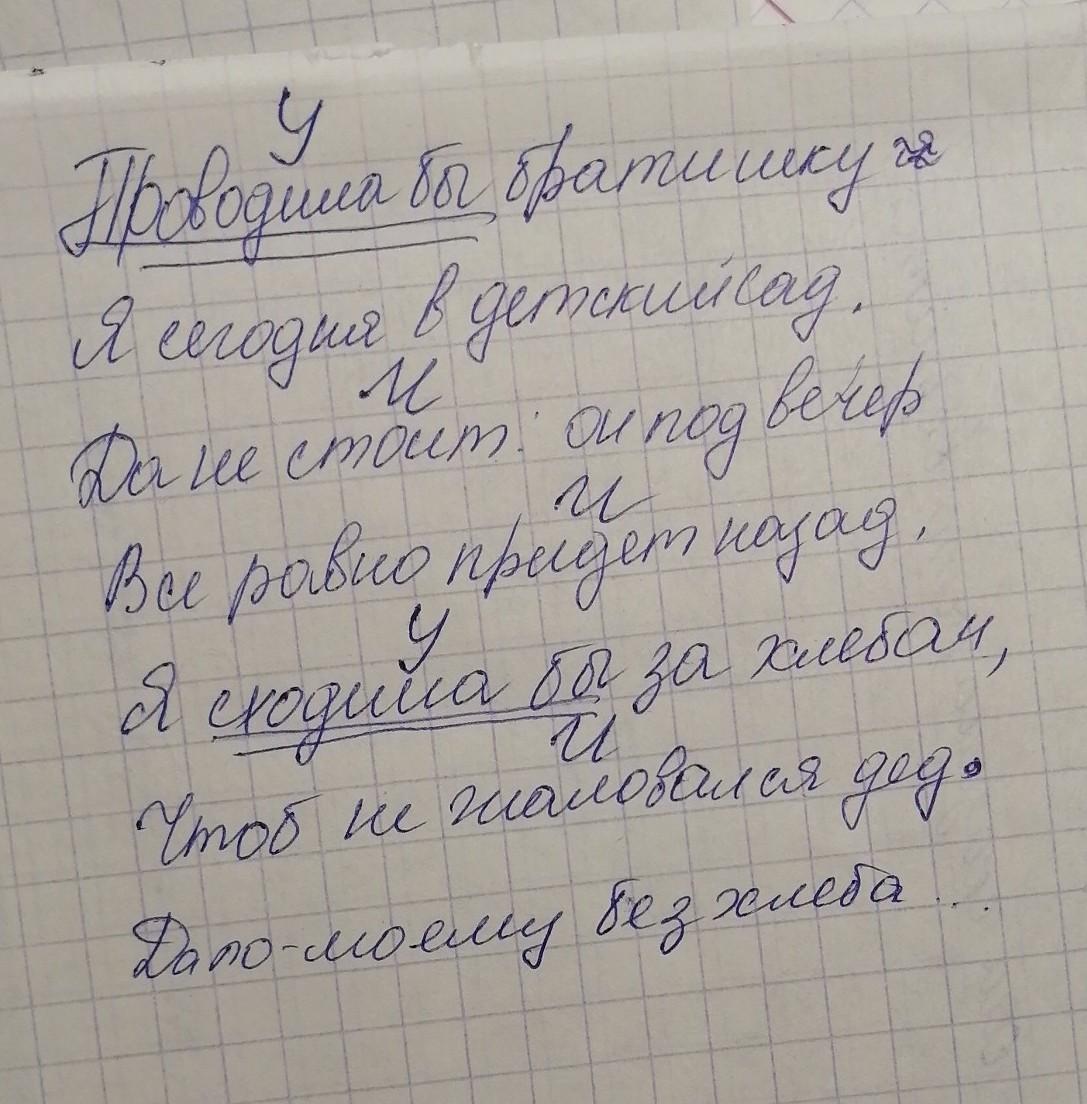 У
Проводила бы братишку
Я сегодня в детский сад.
И
Да не стоит: он под вечер
И
Все равно придет назад.
У
Я сходила бы за хлебом,
И
Чтоб не жаловался дед.
Да по-моему без хлеба...